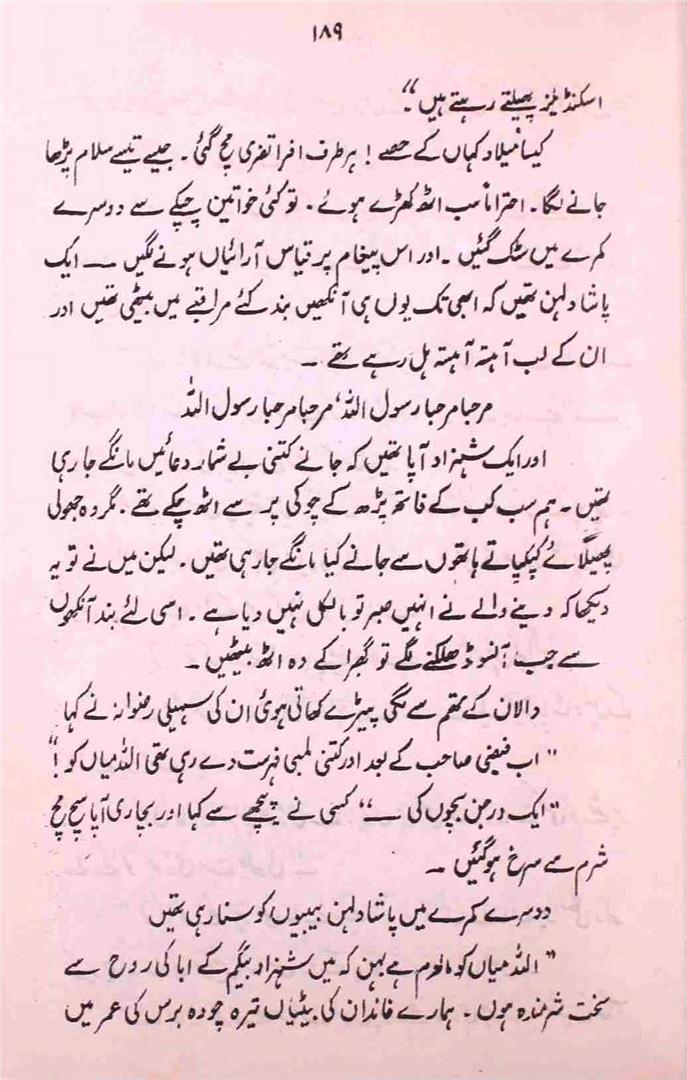 ۱۸۹
اسکنڈیلز پھیلتے رہتے ہیں"۔
کیسا میلاد کہاں کے حصے! ہر طرف افراتفری مچ گئی۔ جیسے تیسے سلام پڑھا
جانے لگا۔ احتراماً سب اٹھ کھڑے ہوئے۔ تو کئی خواتین چپکے سے دوسرے
کمرے میں سٹک گئیں۔ اور اس پیغام پر قیاس آرائیاں ہونے لگیں ـــ ایک
پاشا دلہن تھیں کہ ابھی تک یوں ہی آنکھیں بند کئے مراقبے میں بیٹھی تھیں اور
ان کے لب آہستہ آہستہ ہل رہے تھے ۔
مرحبا مرحبا رسول اللہ، مرحبا مرحبا رسول اللہ
اور ایک شہزاد آپا تھیں کہ جانے کتنی بے شمار دعائیں مانگے جا رہی
تھیں۔ ہم سب کب کے فاتحہ پڑھ کے چوکی پر سے اٹھ چکے تھے۔ مگر وہ جھولی
پھیلائے کپکپاتے ہاتھوں سے جانے کیا مانگے جا رہی تھیں۔ لیکن میں نے تو یہ
دیکھا کہ دینے والے نے انہیں صبر تو بالکل نہیں دیا ہے۔ اسی لئے بند آنکھوں
سے جب آنسو ڈھلکنے لگے تو گھبرا کے وہ اٹھ بیٹھیں۔
دالان کے تھم سے لگی پیڑے کھاتی ہوئی ان کی سہیلی رضوانہ نے کہا
"اب فیضی صاحب کے بعد اور کتنی لمبی فہرست دے رہی تھی اللہ میاں کو!"
"ایک درجن بچوں کی ـــ" کسی نے پیچھے سے کہا اور بچاری آپا سچ مچ
شرم سے سرخ ہو گئیں ۔
دوسرے کمرے میں پاشا دلہن بیبیوں کو سنا رہی تھیں
"اللہ میاں کو مالوم ہے بہن کہ میں شہزاد بیگم کے ابا کی روح سے
سخت شرمندہ ہوں۔ ہمارے خاندان کی بیٹیاں تیرہ چودہ برس کی عمر میں